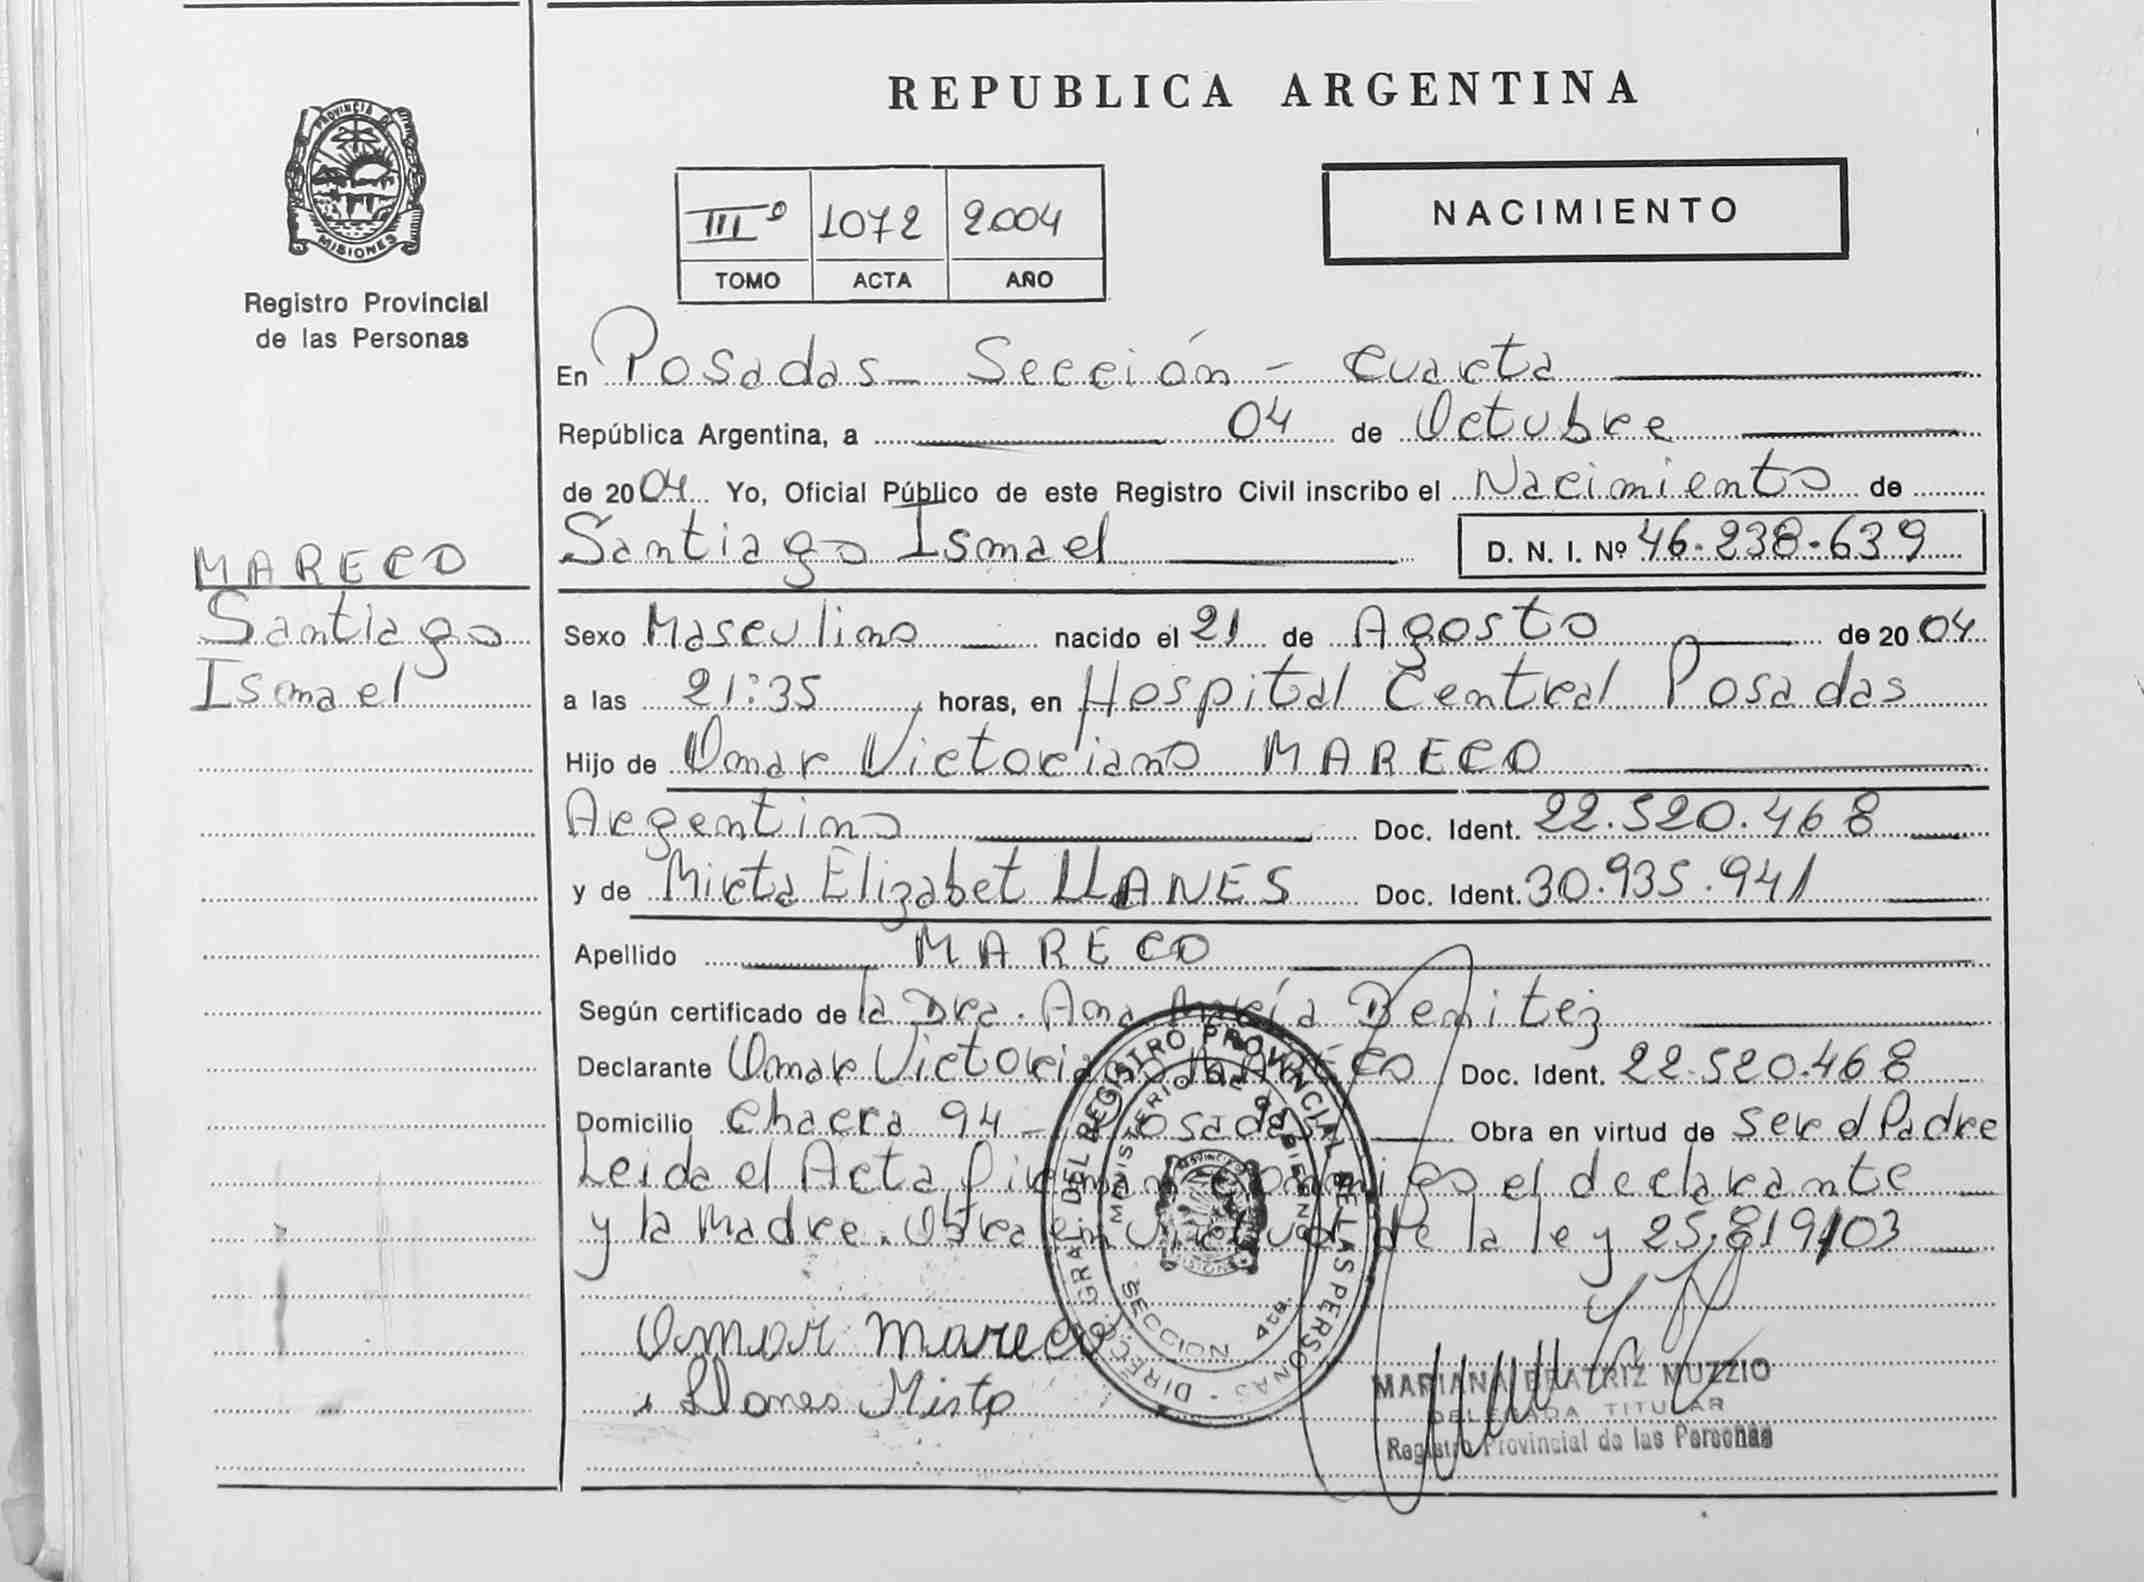 REPUBLICA ARGENTINA
PROVINCIA DE
MISIONES
Registro Provincial
de las Personas
IIIº 1072 2.004
TOMO ACTA AÑO
NACIMIENTO
En Posadas - Sección - Cuarta
República Argentina, a 04 de Octubre
de 2004 Yo, Oficial Público de este Registro Civil inscribo el Nacimiento de
Santiago Ismael D. N. I. Nº 46.238.639
MARECO
Santiago
Ismael
Sexo Masculino nacido el 21 de Agosto de 2004
a las 21:35 horas, en Hospital Central Posadas
Hijo de Omar Victoriano MARECO
Argentino Doc. Ident. 22.520.468
y de Mirta Elizabet LLANES Doc. Ident. 30.935.941
Apellido MARECO
Según certificado de la Dra. Ana María Benitez
Declarante Omar Victoriano MARECO Doc. Ident. 22.520.468
Domicilio Chacra 94 - Posadas Obra en virtud de ser el Padre
Leida el Acta, firman conmigo el declarante
y la Madre. Obra en virtud de la ley 25.819/03
Omar Mareco
Llanes Mirta
DIRECC. GRAL. DEL REGISTRO PROVINCIAL DE LAS PERSONAS
MINISTERIO DE GOBIERNO
SECCION 4ta.
MARIANA BEATRIZ MUZZIO
DELEGADA TITULAR
Registro Provincial de las Personas